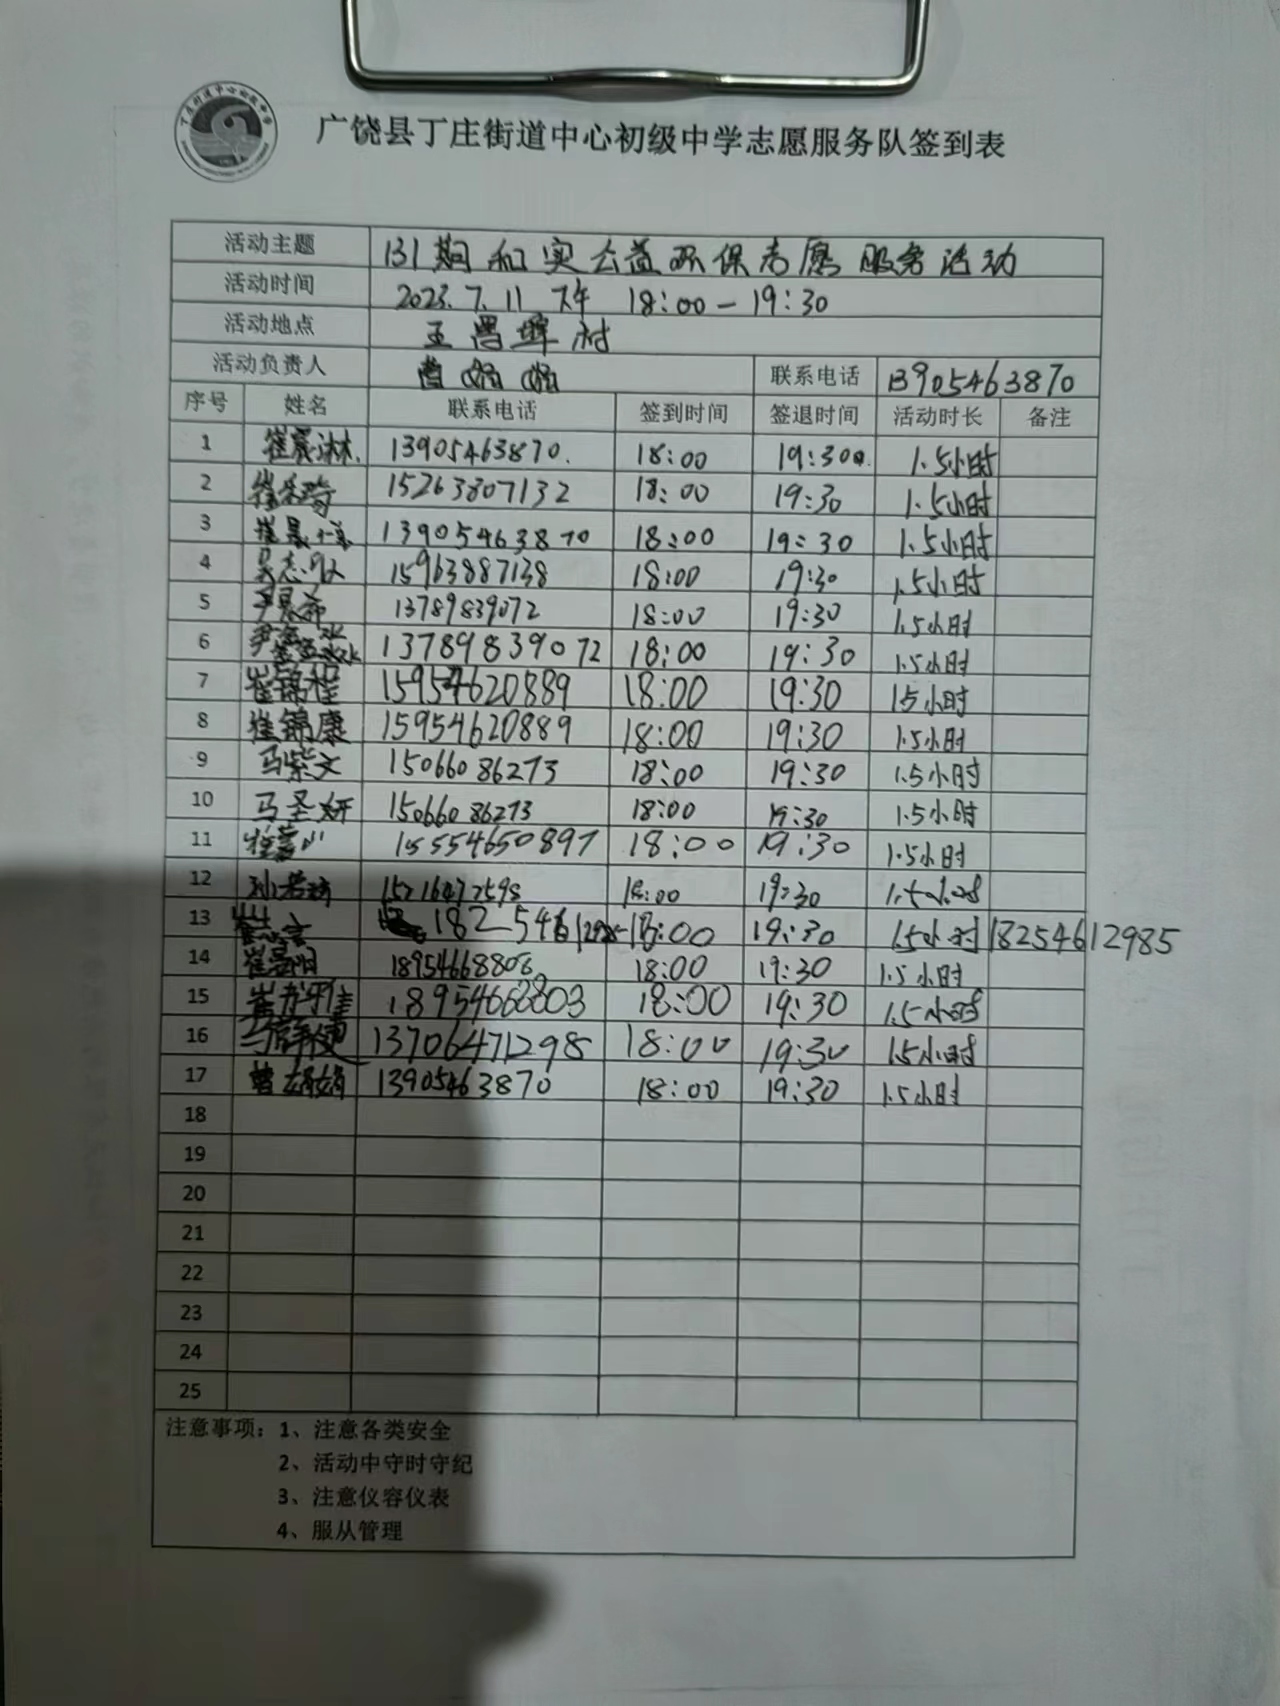 广饶县丁庄街道中心初级中学志愿服务队签到表
活动主题 131期和实公益环保志愿服务活动
活动时间 2023.7.11 下午 18:00-19:30
活动地点 王署埠村
活动负责人 曹娟娟 联系电话 13905463870
序号 姓名 联系电话 签到时间 签退时间 活动时长 备注
1 崔宸淋 13905463870. 18:00 19:30 1.5小时
2 15263807132 18:00 19:30 1.5小时
3 13905463870 18:00 19:30 1.5小时
4 15963887138 18:00 19:30 1.5小时
5 尹晨希 13789839072 18:00 19:30 1.5小时
6 13789839072 18:00 19:30 1.5小时
7 崔锦程 15954620889 18:00 19:30 1.5小时
8 崔锦康 15954620889 18:00 19:30 1.5小时
9 马紫文 15066086273 18:00 19:30 1.5小时
10 马圣妍 15066086273 18:00 19:30 1.5小时
11 15554650897 18:00 19:30 1.5小时
12 18:00 19:30 1.5小时
13 18254612985 18:00 19:30 1.5小时 18254612985
14 18:00 19:30 1.5小时
15 18954668803 18:00 19:30 1.5小时
16 13706471298 18:00 19:30 1.5小时
17 曹娟娟 13905463870 18:00 19:30 1.5小时
18
19
20
21
22
23
24
25
注意事项：1、注意各类安全
2、活动中守时守纪
3、注意仪容仪表
4、服从管理